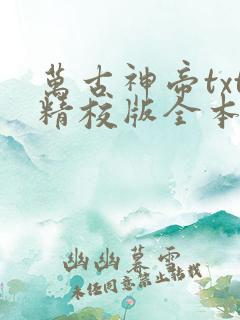 萬古神帝txt
精校版全本
幽幽暮雲
未經同意禁止轉載